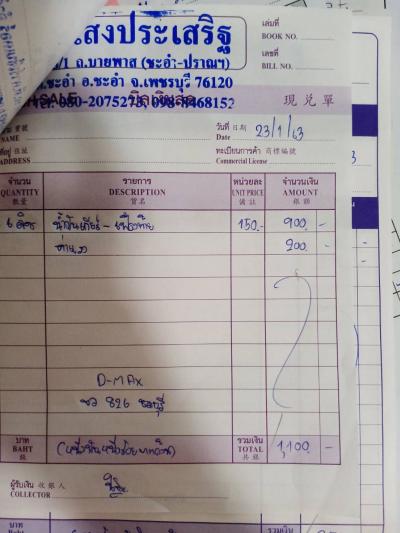 แสงประเสริฐ
เล่มที่
BOOK NO.
/1 ถ.บายพาส (ชะอำ-ปราณฯ)
เลขที่
BILL NO.
.ชะอำ อ.ชะอำ จ.เพชรบุรี 76120
SALE บิลเงินสด 現兌單
NAME
วันที่ 日期 Date 23/1/63
ที่อยู่ 住址
ADDRESS
ทะเบียนการค้า 商標編號
Commercial License
จำนวน QUANTITY 數量 รายการ DESCRIPTION 貨名 หน่วยละ UNIT PRICE 備註 จำนวนเงิน AMOUNT 銀額
6 ลิตร น้ำมันเกียร์ - เฟืองท้าย 150.- 900 -
200 -
D-MAX
826 ชลบุรี
บาท BAHT 銖 (หนึ่งพันหนึ่งร้อยบาทถ้วน) รวมเงิน TOTAL 共銀 1,100 -
ผู้รับเงิน 收銀人
COLLECTOR
บาท
Baht
รวมเงิน